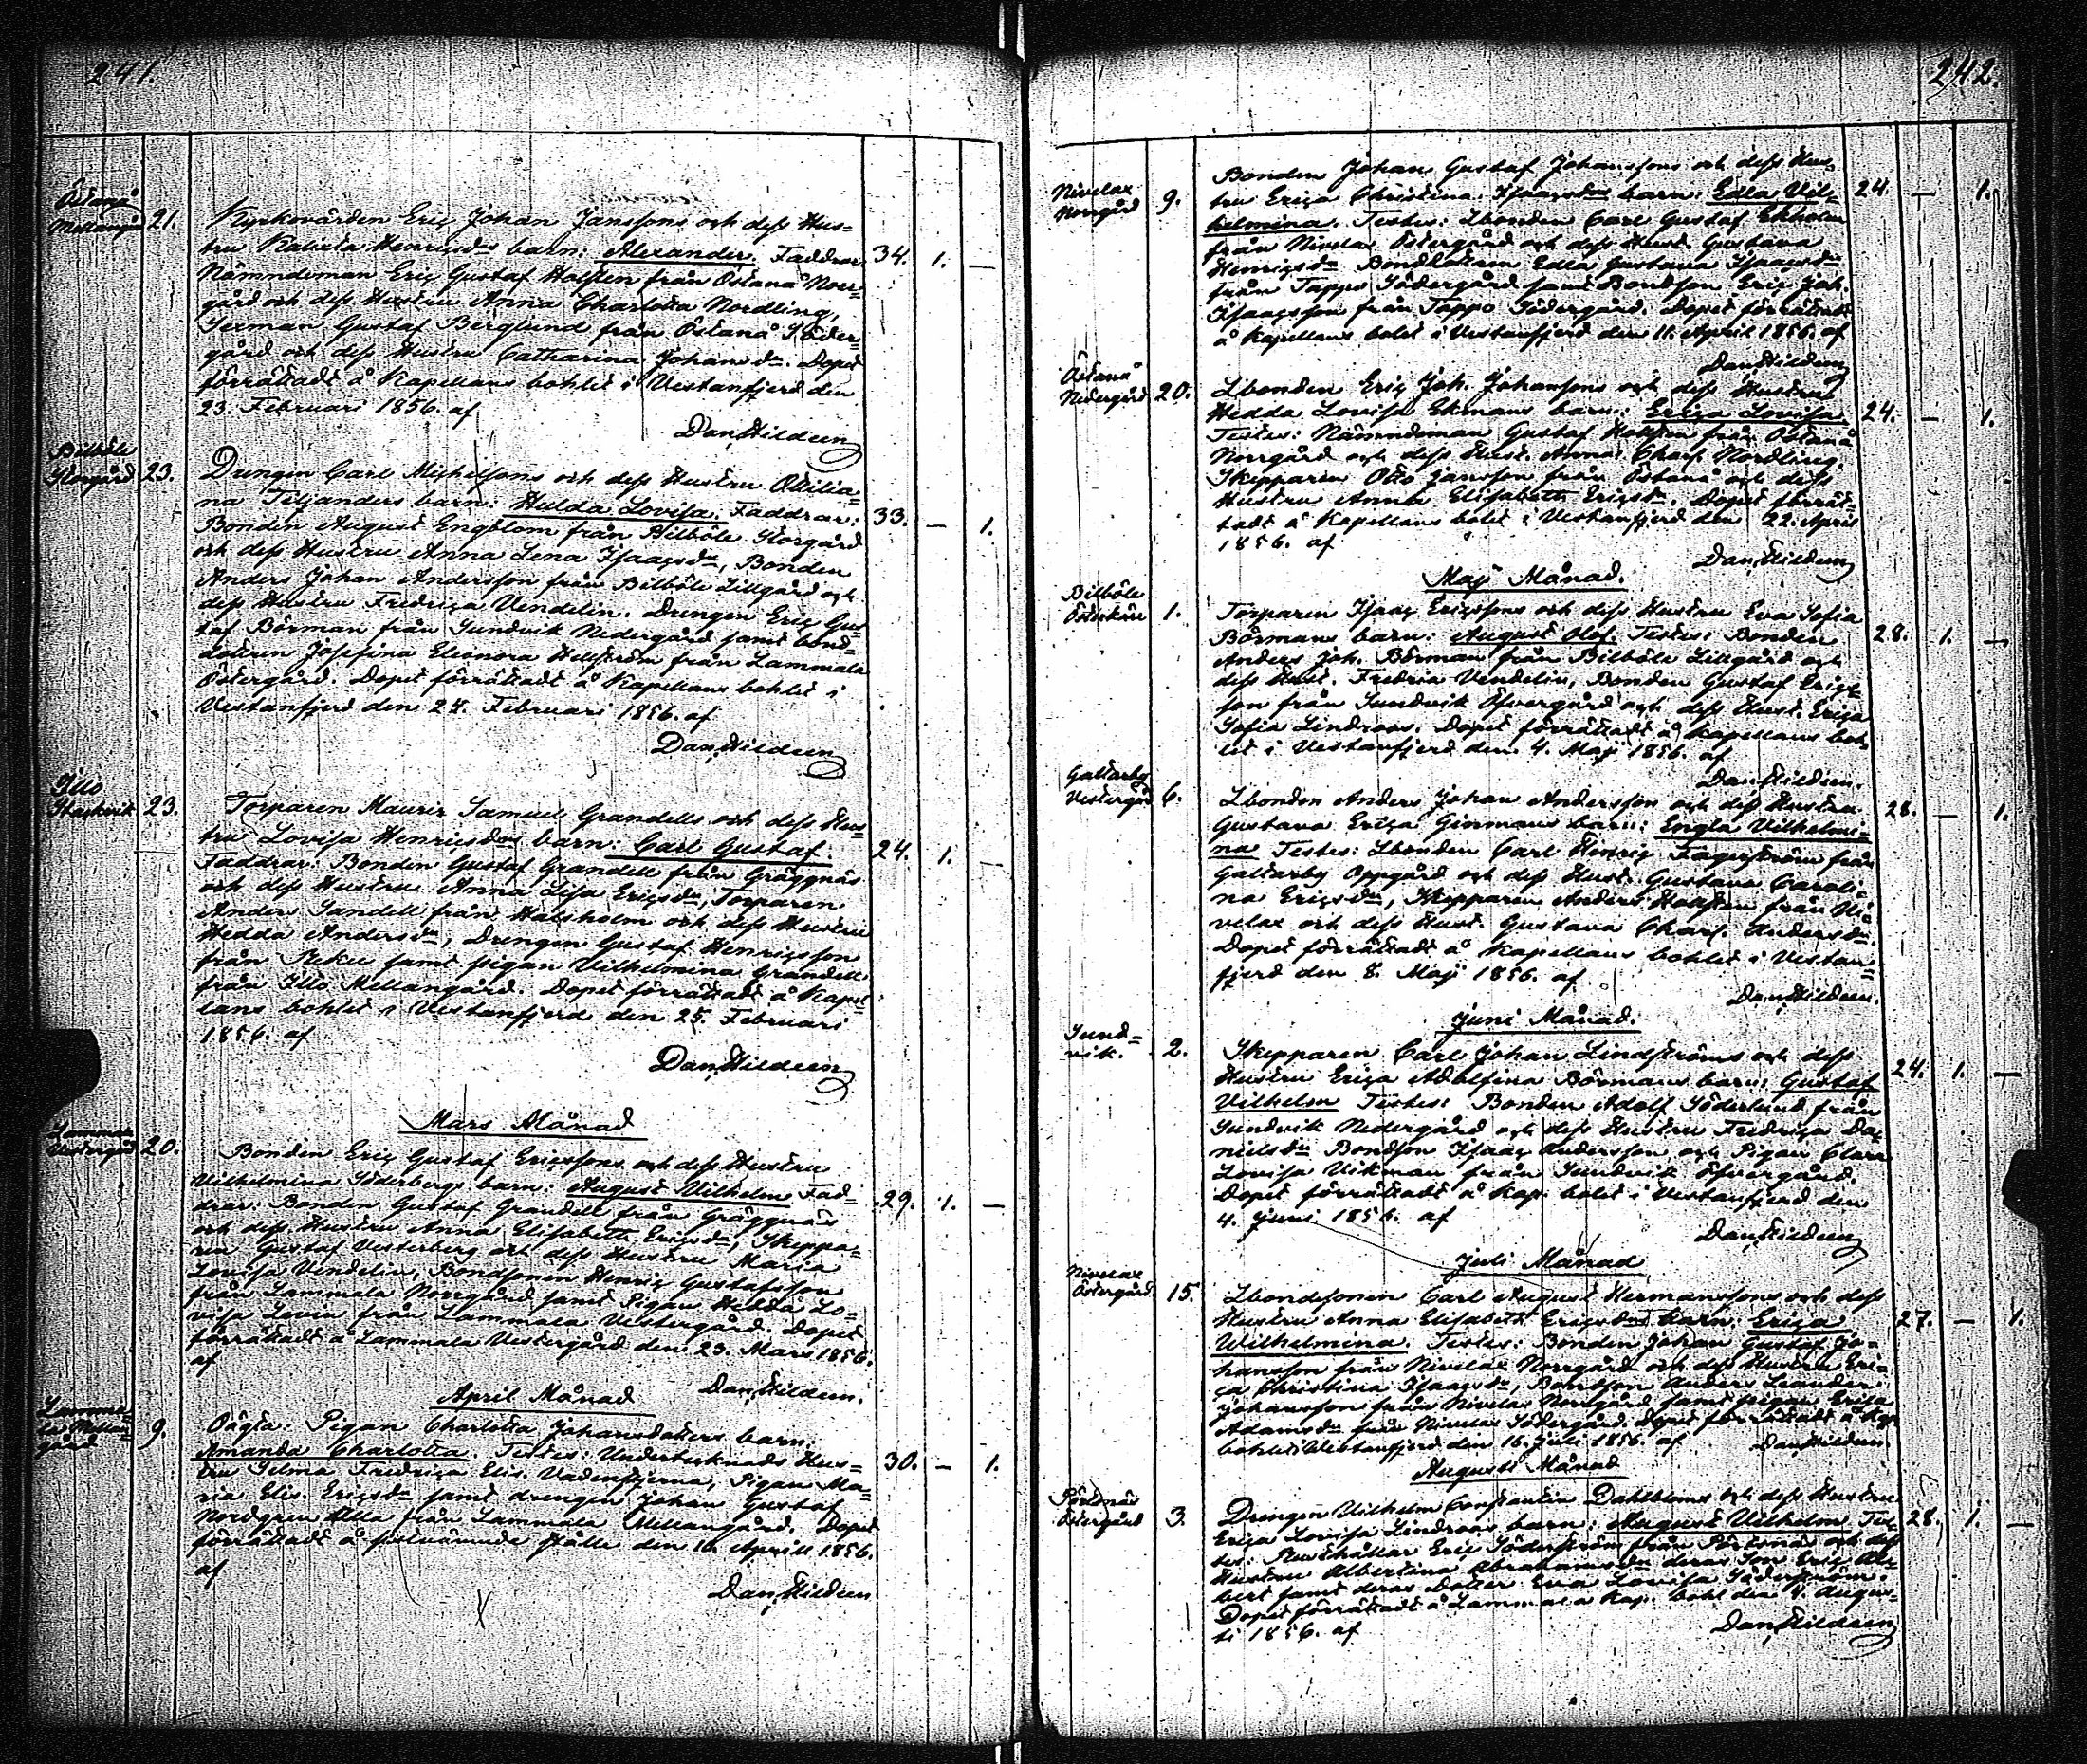 241.
Östanå
Mellangård 21.
Kyrkovärden Eriç Johan Janssons och dess Hus=
tru Kalista Henriçsdrs barn: Alexander. Faddrar: 34. 1. —
Nämndeman Eriç Gustaf Holsten från Östanå Norr=
gård och dess Hustru Anna Charlotta Nordling,
Sexman Gustaf Berglund från Östanå Söder=
gård och dess Hustru Catharina Johansdr. Dopet
förrättadt å Kapellans bohlet i Vestanfjerd den
23. Februari 1856. af
Dan. Hildeen
Bilböle
Storgård 23.
Drengen Carl Michelssons och dess Hustru Ottilia=
na Tiljanders barn: Hulda Lovisa. Faddrar: 33. — 1.
Bonden August Engblom från Bilböle Storgård
och dess Hustru Anna Lena Isaaçsdr, Bonden
Anders Johan Andersson från Bilböle Lillgård och
dess Hustru Fredriça Vendelin. Drengen Eriç Gus=
taf Börman från Sundvik Nedergård samt bond=
dottren Josefina Eleonora Hellström från Lammala
Östergård. Dopet förrättadt å Kapellans bohlet i
Vestanfjerd den 24. Februari 1856. af
Dan. Hildeen
Illo
23.
Torparen Maurir Samuel Grandells och dess Hus=
tru Lovisa Henriçsdrs barn: Carl Gustaf. 24. 1. —
Faddrar: Bonden Gustaf Grandell från Gräggnäs
och dess Hustru Anna Lisa Eriçsdr, Torparen
Anders Sandell från Halsholm och dess Hustru
Hedda Andersdr, Drengen Gustaf Henriçsson
från samt pigan Vilhelmina Grandell
från Illo Mellangård. Dopet förrättadt å Kapel=
lans bohlet i Vestanfjerd den 25. Februari
1856. af
Dan. Hildeen
Mars Månad
Vestergård 20.
Bonden Eriç Gustaf Eriçssons och dess Hustru
Vilhelmina Söderbergs barn: August Vilhelm Fad= 29. 1. —
drar: Bonden Gustaf Grandell från Gräggnäs
och dess Hustru Anna Elisabeth Eriçsdr, Skeppa=
ren Gustaf Vesterberg och dess Hustru Maria
Lovisa Vendelin, Bondsonen Henriç Gustafsson
från Lammala Norrgård samt Pigan Hedda Lo=
visa från Lammala Vestergård. Dopet
förrättadt å Lammala Vestergård den 23. Mars 1856.
af
Dan. Hildeen.
April Månad
Lamma=
la Mellan=
gård 9.
Oägta: Pigan Charlotta Johansdotters barn:
Amanda Charlotta. Testes: Undertecknads Hus= 30. — 1.
tru Selma Fredriça Elis. Vadenstjerna, Pigan Ma=
ria Elis. Eriçsdr samt drengen Johan Gustaf
Nordgren Alla från Lammala Mellangård. Dopet
förrättadt å förenämnde ställe den 10. April 1856.
af
Dan. Hildeen
242.
Nivelax
Norrgård 9.
Bonden Johan Gustaf Johanssons och dess Hus=
tru Eriça Christina Isaaçsdrs barn: Edla Vil= 24. — 1.
helmina. Testes: Lbonden Carl Gustaf Ekholm
från Nivelax Östergård och dess Hust. Gustava
Henriçsdr Bonddottren Edla Gustava Isaaçsdr
från Tappo Södergård samt Bondson Eriç Joh.
Isaaçsson från Tappo Södergård. Dopet förrättadt
å Kapellans bolet i Vestanfjerd den 11. April 1856. af
Dan. Hildeen
Östanå
Nedergård 20.
Lbonden Eriç Joh. Johanssons och dess Hustru
Hedda Lovisa Ekmans barn: Eriça Lovisa 24. — 1.
Testes: Nämndeman Gustaf Holsten från Östanå
Norrgård och dess Hust. Anna Charl. Nordling.
Skepparen Otto Jansson från Östanå och dess
Hustru Anna Elisabeth Eriçsdr. Dopet förrät=
tadt å Kapellans bolet i Vestanfjerd den 22. April
1856. af
Dan. Hildeen
Maj Månad.
Bilböle
1.
Torparen Isaaç Eriçssons och dess Hustru Eva Sofia
Börmans barn: August Olof. Testes: Bonden 28. 1. —
Anders Joh. Börman från Bilböle Lillgård och
dess Hust. Fredria Vendelin, Bonden Gustaf Eriçs=
son från Sundvik Öfvergård och dess Hust. Eriça
Sofia Lindroos. Dopet förrättadt å Kapellans boh
let i Vestanfjerd den 4. Maj 1856. af
Dan. Hildeen.
Galtarby
Vestergård 6.
Lbonden Anders Johan Andersson och dess Hustru
Gustava Eriça Ginmans barn: Engla Vilhelmi= 28. — 1.
na Testes: Lbonden Carl Henriç Fagerström från
Galtarby Oppgård och dess Hust. Gustava Caroli=
na Eriçsdr, Skepparen Anders Holsten från Ni=
velax och dess Hust. Gustava Charl. Andersdr.
Dopet förrättadt å Kapellans bohlet i Vestan=
fjerd den 8. Maj 1856. af
Dan. Hildeen.
Juni Månad.
Sund=
vik. 2.
Skepparen Carl Johan Lindströms och dess
Hustru Eriça Adolfina Börmans barn: Gustaf 24. 1. —
Vilhelm Testes: Bonden Adolf Söderlund från
Sundvik Nedergård och dess Hustru Fredriça Da=
nielsdr Bondson Isaaç Andersson och Pigan Clara
Lovisa Vikman från Sundvik Öfvergård.
Dopet förrättadt å Kap. bolet i Vestanfjerd den
4. Juni 1856. af
Dan. Hildeen
Juli Månad
Nivelax
Östergård 15.
Lbondesonen Carl August Hermanssons och dess
Hustru Anna Elisabeth Eriçsdrs barn: Eriça 27. — 1.
Wilhelmina. Testes: Bonden Johan Gustaf Jo=
hansson från Nivelax Norrgård och dess Hustru Eri=
ça Christina Isaaçsdr, Bondson Anders Leander
Johansson från Nivelax Norrgård samt pigan Erika
Adamsdr från Nivelax Södergård. Dopet förrättadt å Kap.
bohlet i Vestanfjerd den 16. Juli 1856. af Dan. Hildeen
Augusti Månad
Pörtsnäs
Östergård 3.
Drengen Vilhelm Constantin Dahlbloms och dess Hustru
Eriça Lovisa Lindroos barn: August Vilhelm. Tes= 28. 1. —
tes: Rusthållar Eriç Söderström från Pörtsnäs och dess
Hustru Albertina Abrahamsdr deras Son Eriç Al=
bert samt deras Dotter Eva Lovisa Söderström.
Dopet förrättadt å Lammala Kap. bohl den 4. Augus=
ti 1856. af
Dan. Hildeen